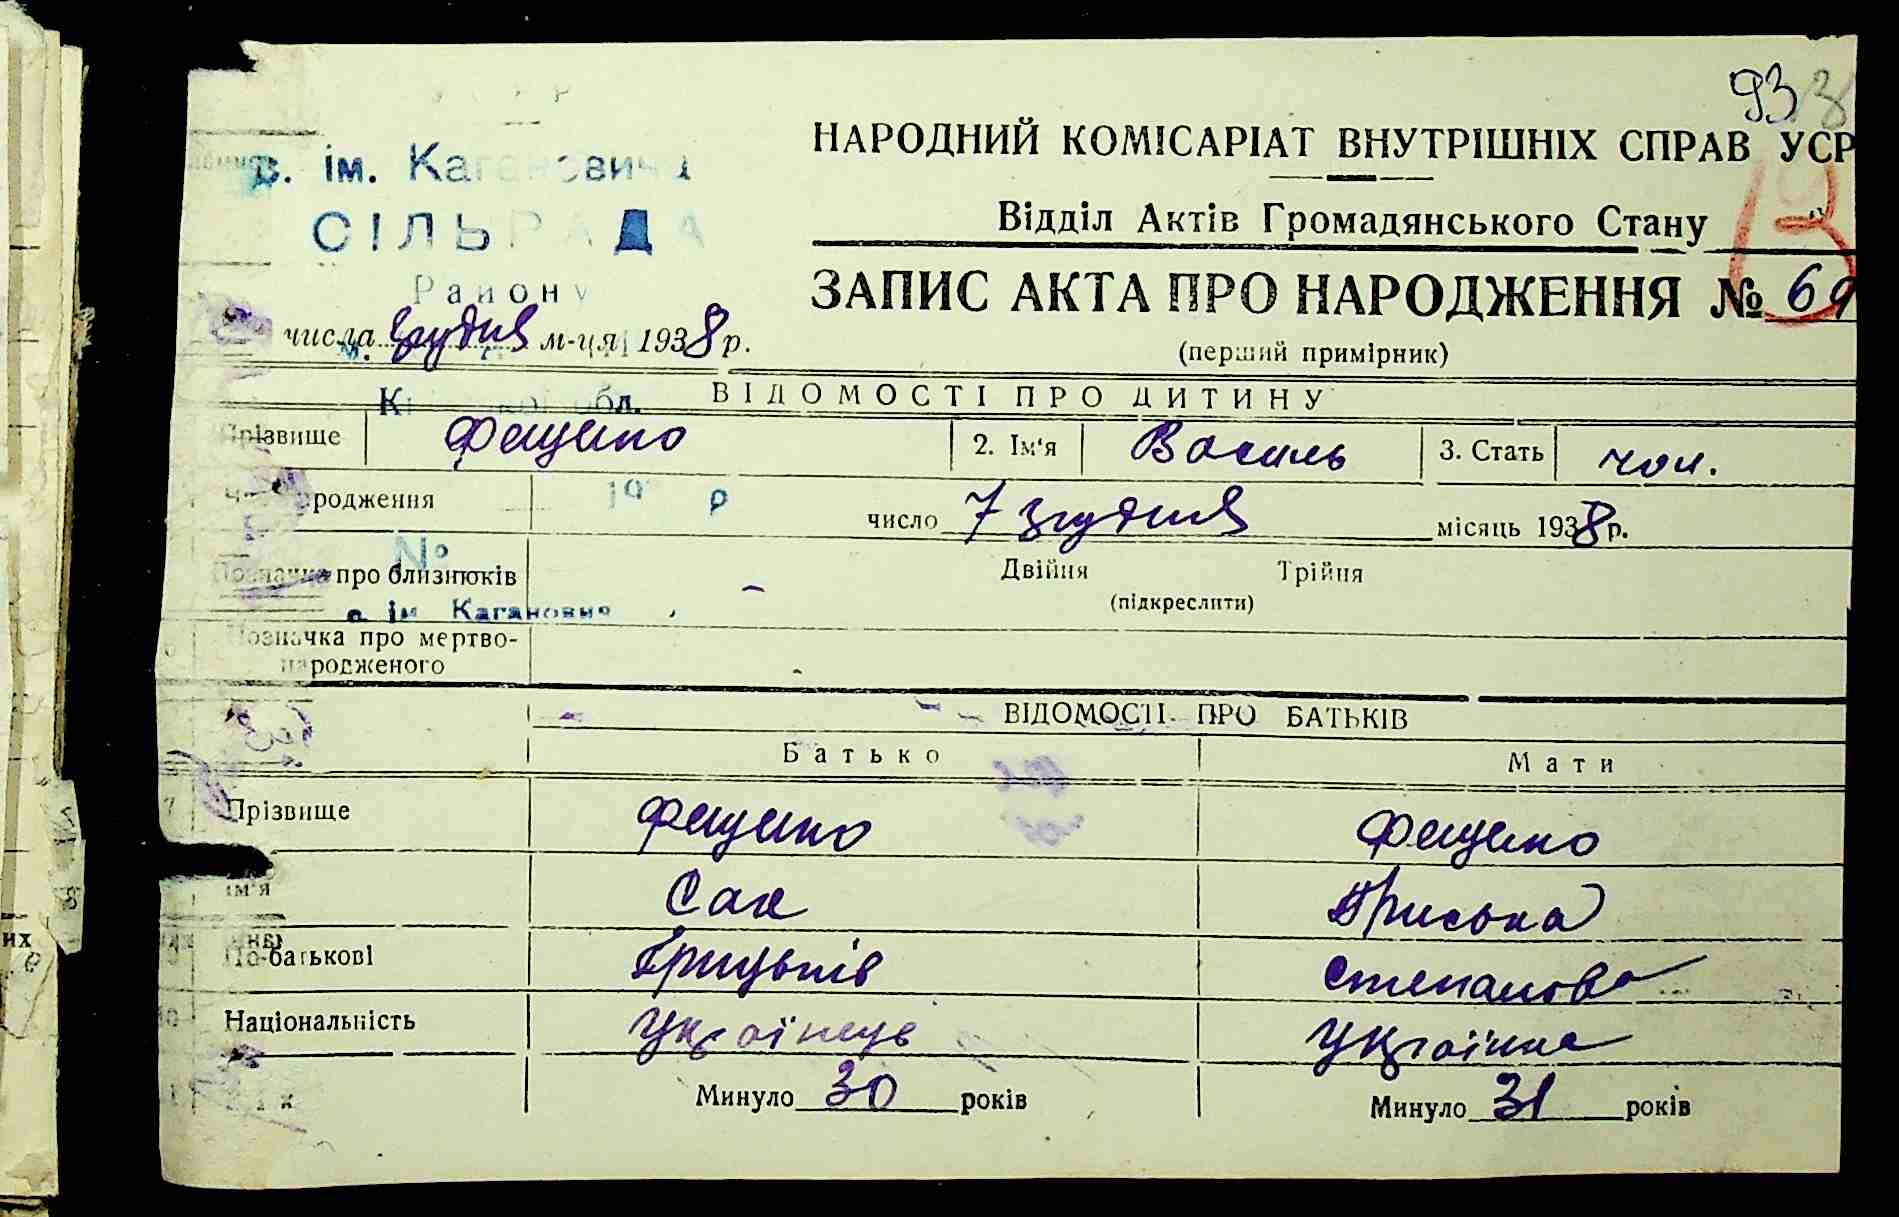 93
НАРОДНИЙ КОМІСАРІАТ ВНУТРІШНІХ СПРАВ УСР
с. ім. Кагановича
Відділ Актів Громадянського Стану
СІЛЬРАДА
Району
ЗАПИС АКТА ПРО НАРОДЖЕННЯ № 69
числа грудня м-ця 1938 р.
(перший примірник)
обл.
ВІДОМОСТІ ПРО ДИТИНУ
Прізвище Фещенко 2. Ім'я Василь 3. Стать чол.
родження число 7 грудня місяць 1938 р.
№
Позначка про близнюків - Двійня Трійня
(підкреслити)
с. ім. Кагановича
Позначка про мертво-
народженого -
ВІДОМОСТІ ПРО БАТЬКІВ
Батько Мати
7 Прізвище Фещенко Фещенко
Ім'я Сак Приська
По-батькові Грицьків Степанова
10 Національність Українець Українка
Минуло 30 років Минуло 31 років
их